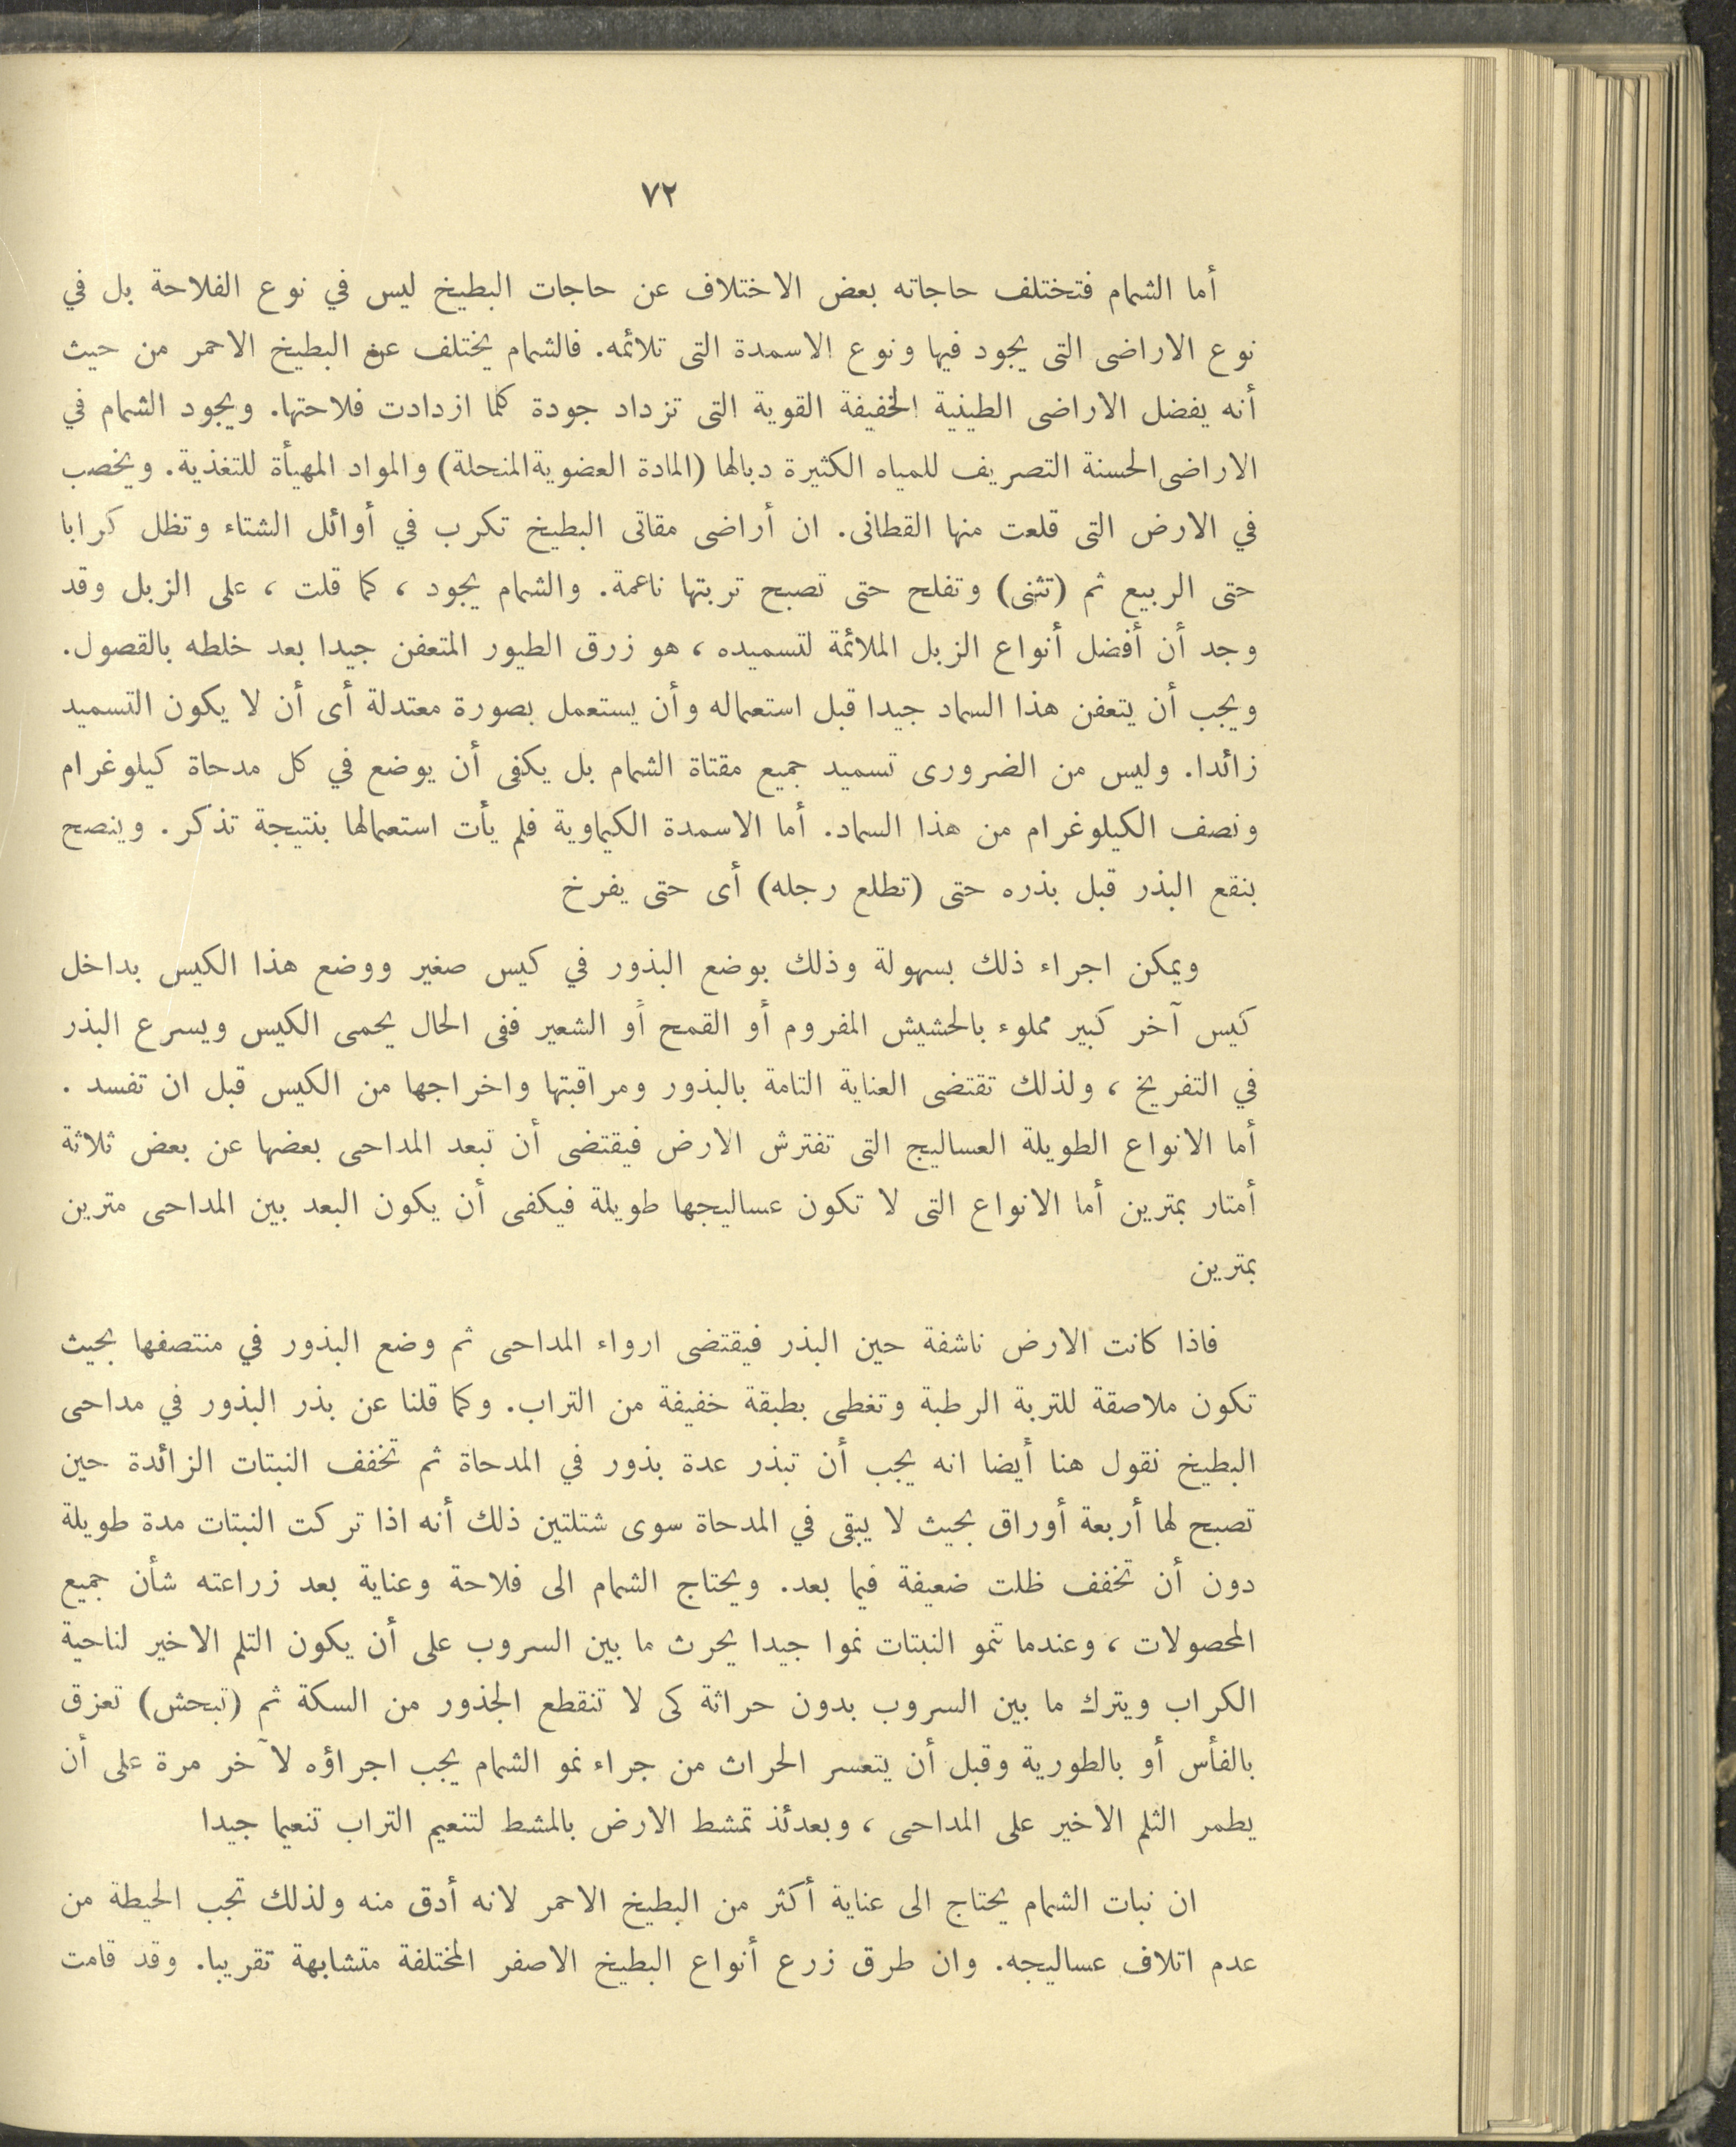 ٧٢
أما الشمام فتختلف حاجاته بعض الاختلاف عن حاجات البطيخ ليس في نوع الفلاحة بل في
نوع الاراضى التى يجود فيها ونوع الاسمدة التى تلائمه. فالشمام يختلف عن البطيخ الاحمر من حيث
أنه يفضل الاراضى الطينية الخفيفة القوية التى تزداد جودة كلما ازدادت فلاحتها. ويجود الشمام في
الاراضى الحسنة التصريف للمياه الكثيرة دبالها (المادة العضوية المنحلة) والمواد المهيأة للتغذية. ويخصب
في الارض التى قلعت منها القطانى. ان أراضى مقاتى البطيخ تكرب في أوائل الشتاء وتظل كرابا
حتى الربيع ثم (تثنى) وتفلح حتى تصبح تربتها ناعمة. والشمام يجود ، كما قلت ، على الزبل وقد
وجد أن أفضل أنواع الزبل الملائمة لتسميده ، هو زرق الطيور المتعفن جيدا بعد خلطه بالقصول.
ويجب أن يتعفن هذا السماد جيدا قبل استعماله وأن يستعمل بصورة معتدلة أى أن لا يكون التسميد
زائدا. وليس من الضرورى تسميد جميع مقتاة الشمام بل يكفى أن يوضع في كل مدحاة كيلوغرام
ونصف الكيلوغرام من هذا السماد. أما الاسمدة الكيماوية فلم يأت استعمالها بنتيجة تذكر. وينصح
بنقع البذر قبل بذره حتى (تطلع رجله) أى حتى يفرخ
ويمكن اجراء ذلك بسهولة وذلك بوضع البذور في كيس صغير ووضع هذا الكيس بداخل
كيس آخر كبير مملوء بالحشيش المفروم أو القمح أو الشعير ففى الحال يحمى الكيس ويسرع البذر
في التفريخ ، ولذلك تقتضى العناية التامة بالبذور ومراقبتها واخراجها من الكيس قبل ان تفسد .
أما الانواع الطويلة العساليج التى تفترش الارض فيقتضى أن تبعد المداحى بعضها عن بعض ثلاثة
أمتار بمترين أما الانواع التى لا تكون عساليجها طويلة فيكفى أن يكون البعد بين المداحى مترين
بمترين
فاذا كانت الارض ناشفة حين البذر فيقتضى ارواء المداحى ثم وضع البذور في منتصفها بحيث
تكون ملاصقة للتربة الرطبة وتغطى بطبقة خفيفة من التراب. وكما قلنا عن بذر البذور في مداحى
البطيخ نقول هنا أيضا انه يجب أن تبذر عدة بذور في المدحاة ثم تخفف النبتات الزائدة حين
تصبح لها أربعة أوراق بحيث لا يبقى في المدحاة سوى شتلتين ذلك أنه اذا تركت النبتات مدة طويلة
دون أن تخفف ظلت ضعيفة فيما بعد. ويحتاج الشمام الى فلاحة وعناية بعد زراعته شأن جميع
المحصولات ، وعندما تنمو النبتات نموا جيدا يحرث ما بين السروب على أن يكون التلم الاخير لناحية
الكراب ويترك ما بين السروب بدون حراثة كى لا تنقطع الجذور من السكة ثم (تبحش) تعزق
بالفأس أو بالطورية وقبل أن يتعسر الحراث من جراء نمو الشمام يجب اجراؤه لآخر مرة على أن
يطمر الثلم الاخير على المداحى ، وبعدئذ تمشط الارض بالمشط لتنعيم التراب تنعيما جيدا
ان نبات الشمام يحتاج الى عناية أكثر من البطيخ الاحمر لانه أدق منه ولذلك تجب الحيطة من
عدم اتلاف عساليجه. وان طرق زرع أنواع البطيخ الاصفر المختلفة متشابهة تقريبا. وقد قامت